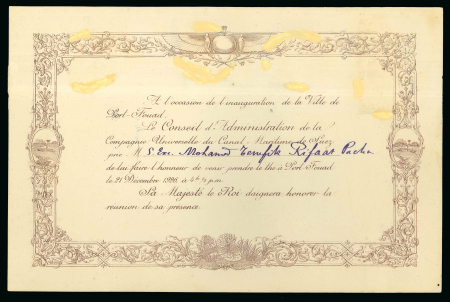 A l'occasion de l'inauguration de la Ville de
Port-Fouad.
Le Conseil d'Administration de la
Compagnie Universelle du Canal Maritime de Suez
prie M. S. Exc. Mohamed Tewfik Rifaat Pacha
de lui faire l'honneur de venir prendre le thé à Port Fouad
le 21 Décembre 1926 à 4h ½ p.m.
Sa Majesté le Roi daignera honorer la
réunion de sa présence.